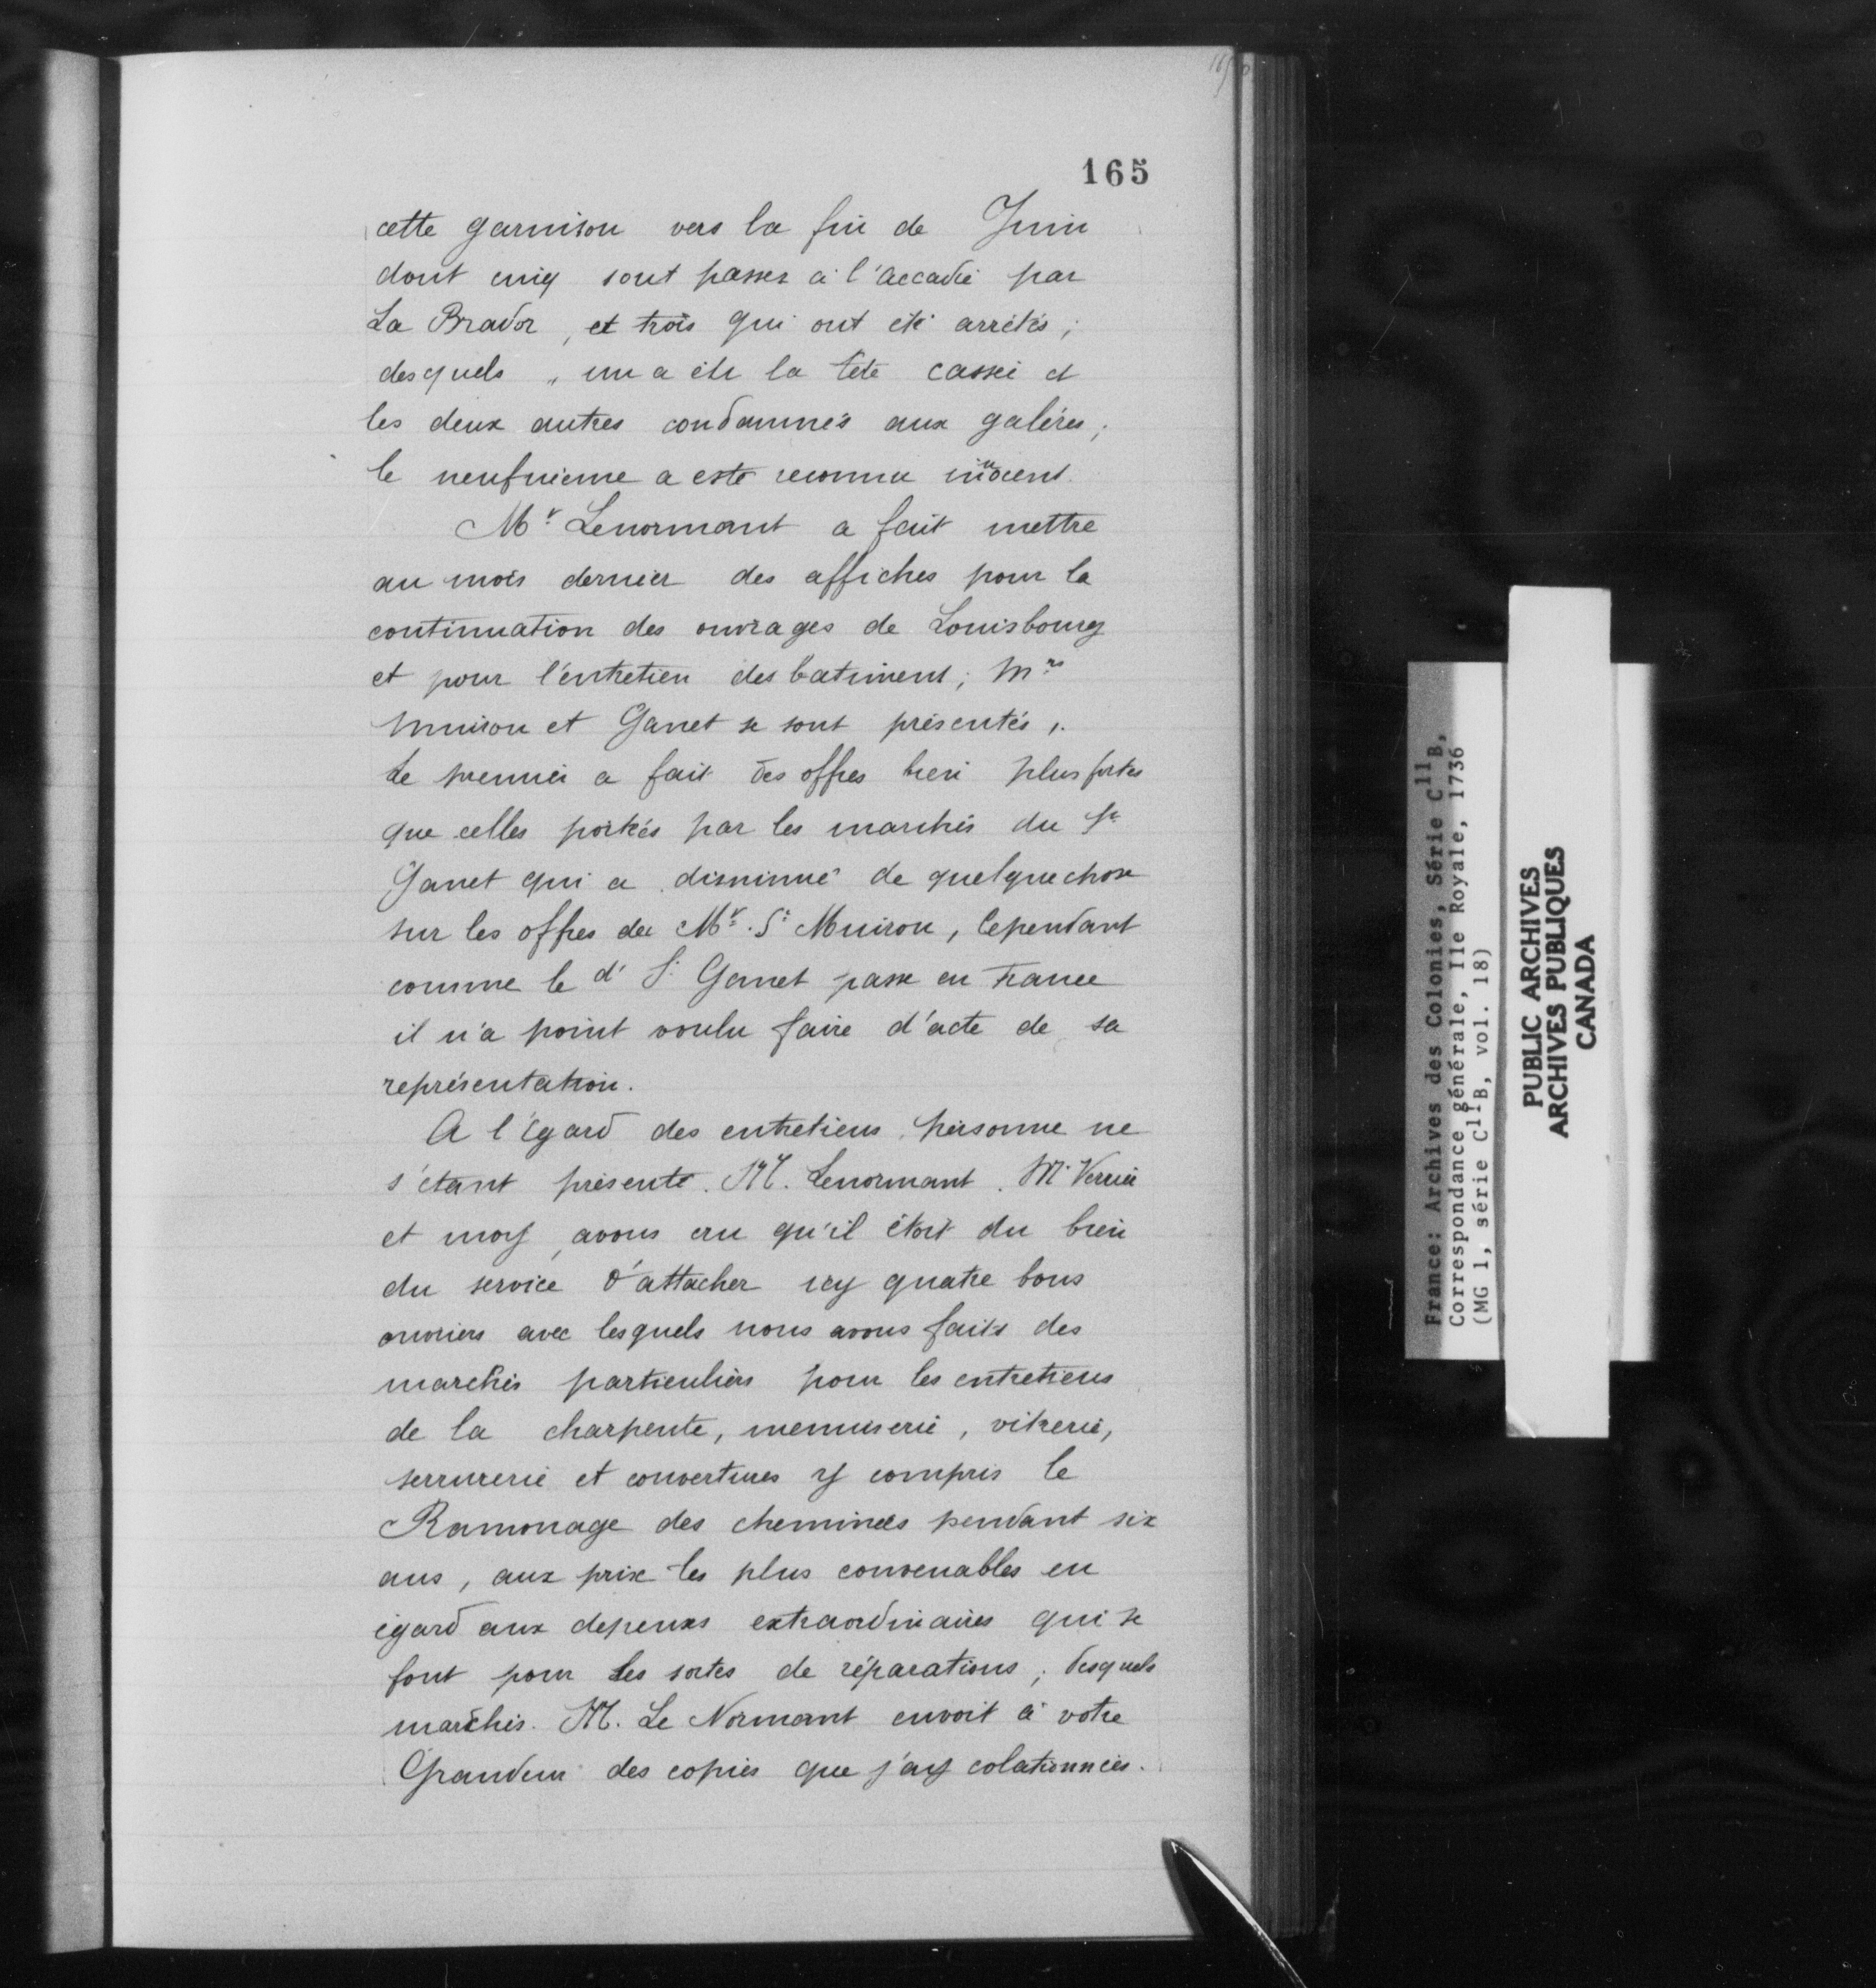 165
cette garnison vers la fin de Juin
dont cinq sont passes a l'accadie par
La Brador, et trois qui ont été arrétés;
desquels, un a été la tete cassée et
les deux autres condamnés aux galéres;
le neufvieme a esté reconnu innocent.
Mr Lenormant a fait mettre
au mois dernier des affiches pour la
continuation des ouvrages de Louisbourg
et pour l'entretien des batiments; Mrs
Muiron et Ganet se sont présentés,
Le premier a fait des offres bien plus fortes
que celles portées par les marchés du Sr
Ganet qui a diminué de quelque chose
sur les offres de Mr. Sr Muiron, Cependant
comme le d' Sr Ganet passe en France
il n'a point voulu faire d'acte de sa
représentation.
A l'égard des entretiens, personne ne
s'étant présenté. M. Lenormant. Mr Verrier
et moy, avons cru qu'il étoit du bien
du service d'attacher icy quatre bons
ouvriers avec lesquels nous avons faits des
marchés particuliers pour les entretiens
de la charpente, menuiserie, vitrerie,
serrurerie et couvertures y compris le
Ramonage des cheminées pendant six
ans, aux prix les plus convenables eu
égard aux depenses extraordinaires qui se
font pour les sortes de réparations; desquels
marchés. M. Le Normant envoit à votre
Grandeur des copies que j'ay colationnées.
France: Archives des Colonies, Série C11B,
Correspondance générale, Ile Royale, 1736
(MG 1, série C11B, vol. 18)
PUBLIC ARCHIVES
ARCHIVES PUBLIQUES
CANADA